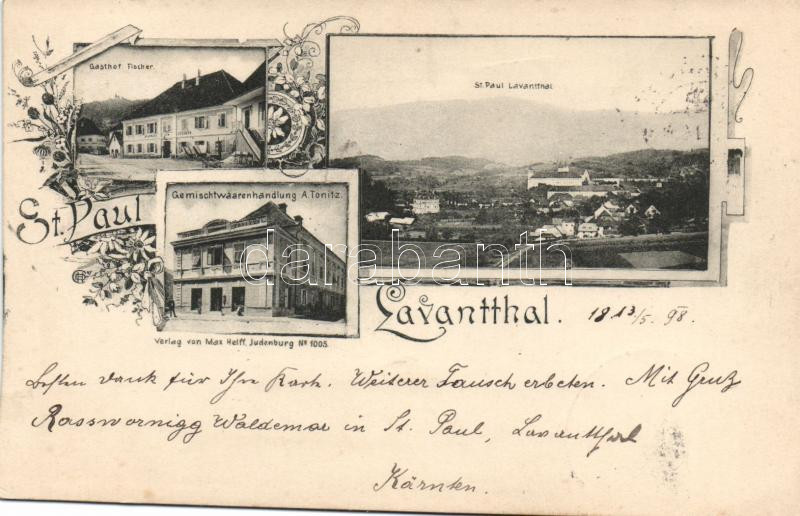 Gasthof Fischer.
St. Paul Lavantthal
Gemischtwaarenhandlung A. Tonitz.
St. Paul
darabanth
Lavantthal.
1813/5. 98.
Verlag von Max Helff, Judenburg No 1005.
Besten Dank für Ihre Karte. Weiterer Tausch erbeten. Mit Gruß
Rasswornigg Waldemar in St. Paul, Lavantthal
Kärnten.